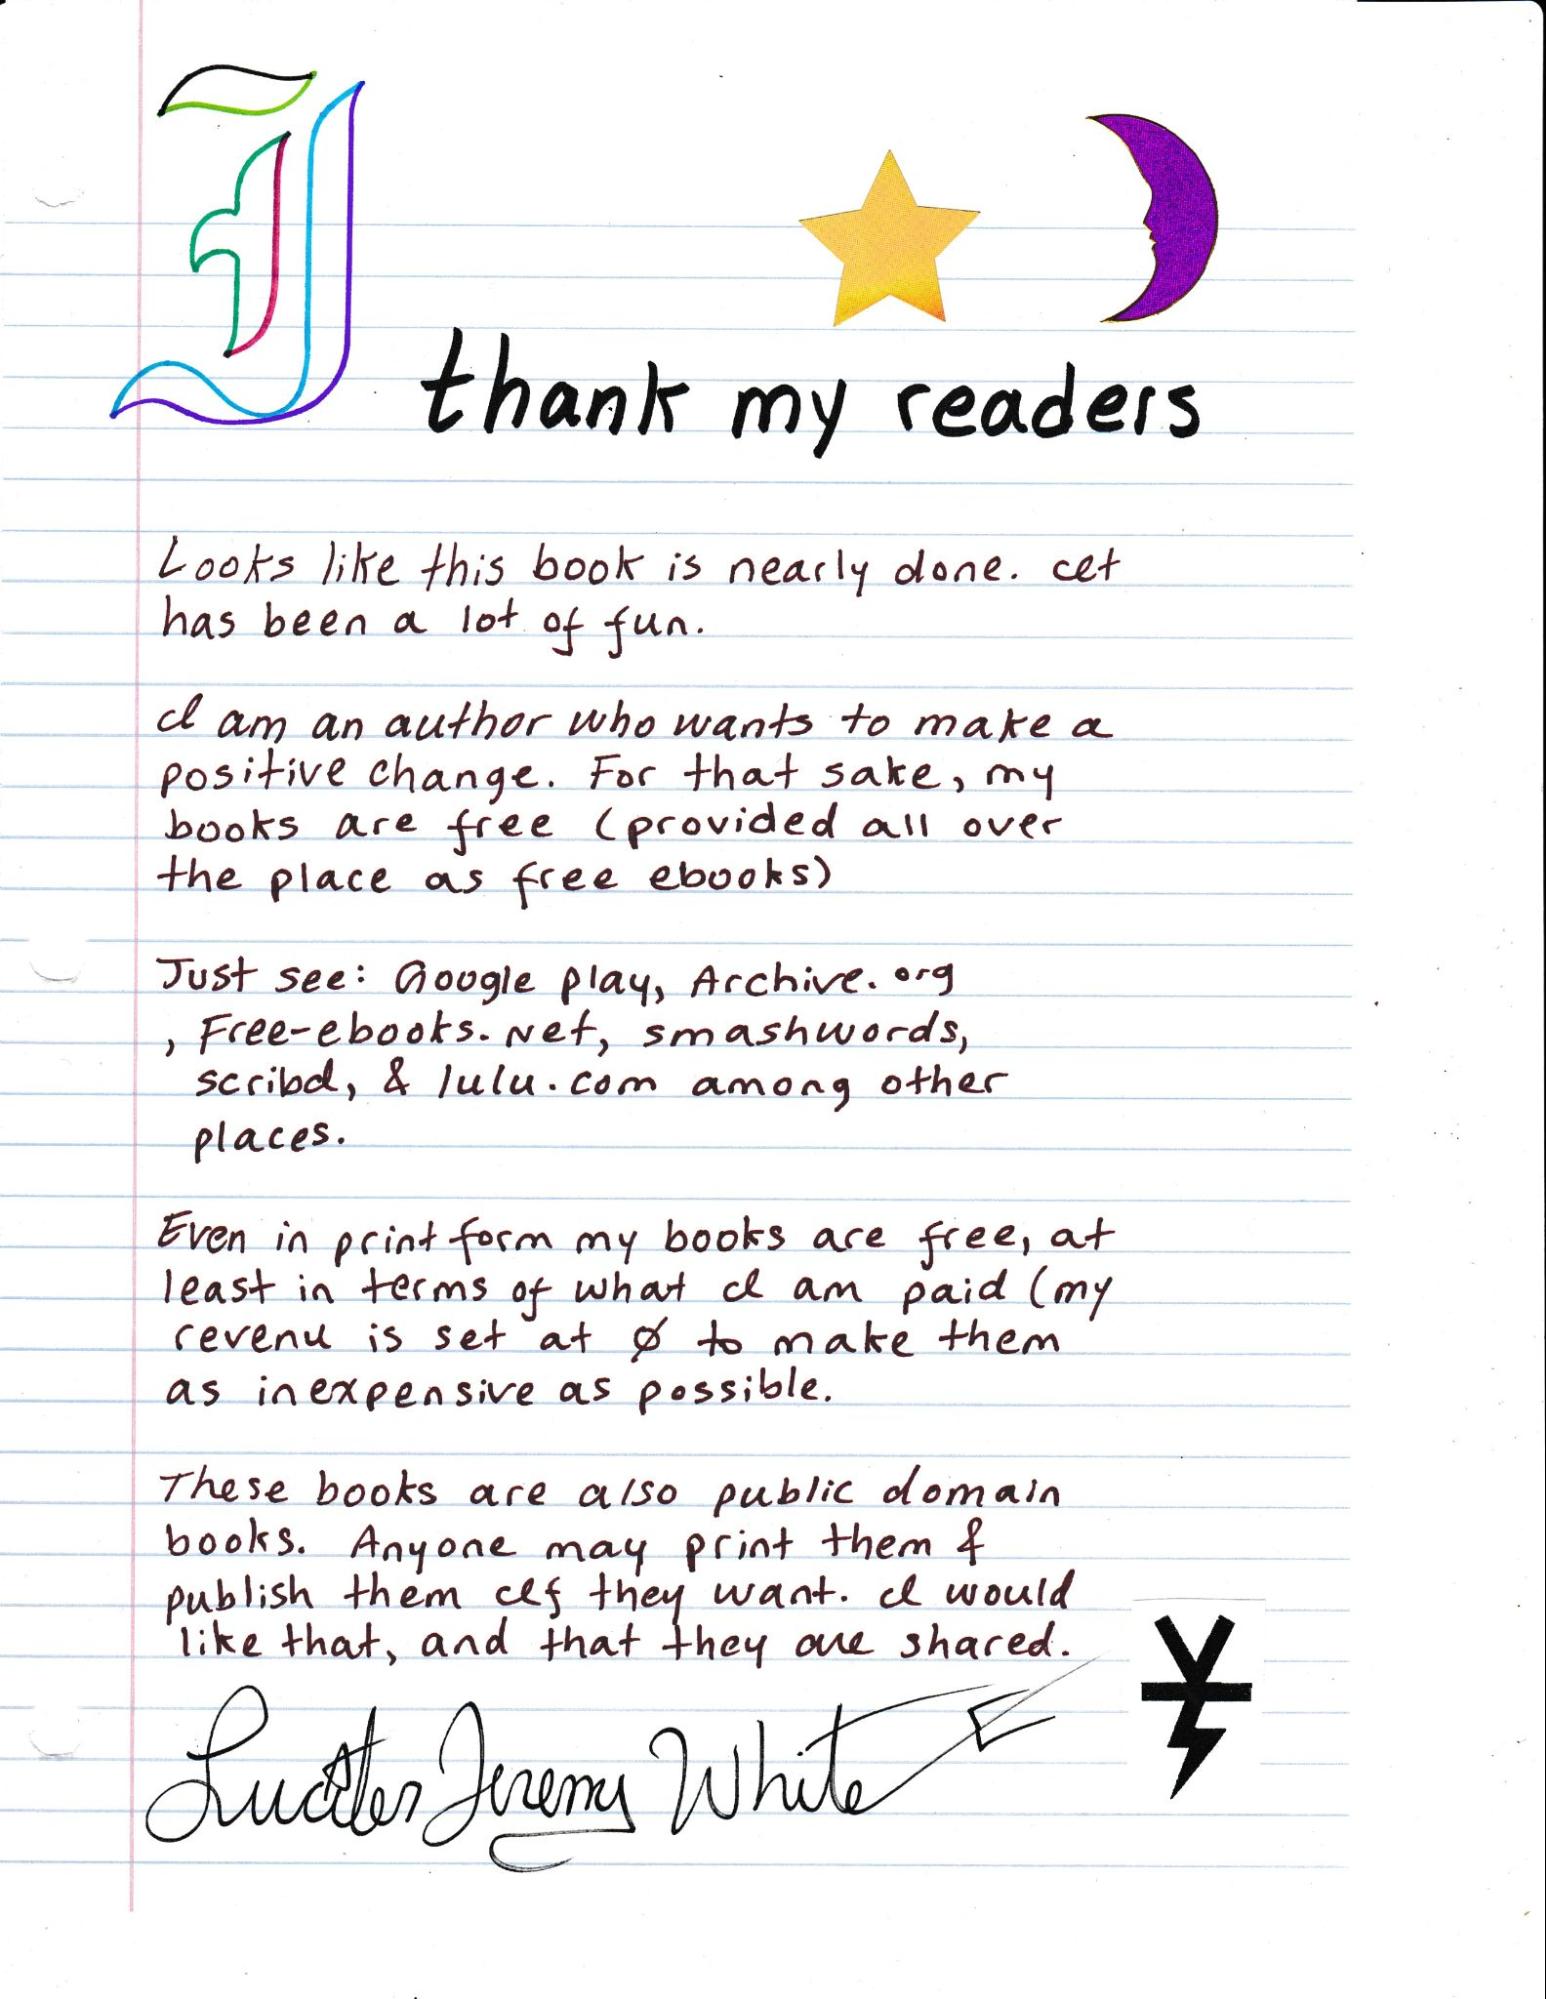 I thank my readers
Looks like this book is nearly done. It
has been a lot of fun.
I am an author who wants to make a
positive change. For that sake, my
books are free (provided all over
the place as free ebooks)
Just see: Google play, Archive.org
, Free-ebooks.Net, smashwords,
scribd, & lulu.com among other
places.
Even in print form my books are free, at
least in terms of what I am paid (my
revenu is set at Ø to make them
as inexpensive as possible.
These books are also public domain
books. Anyone may print them &
publish them If they want. I would
like that, and that they are shared.
Jeremy White